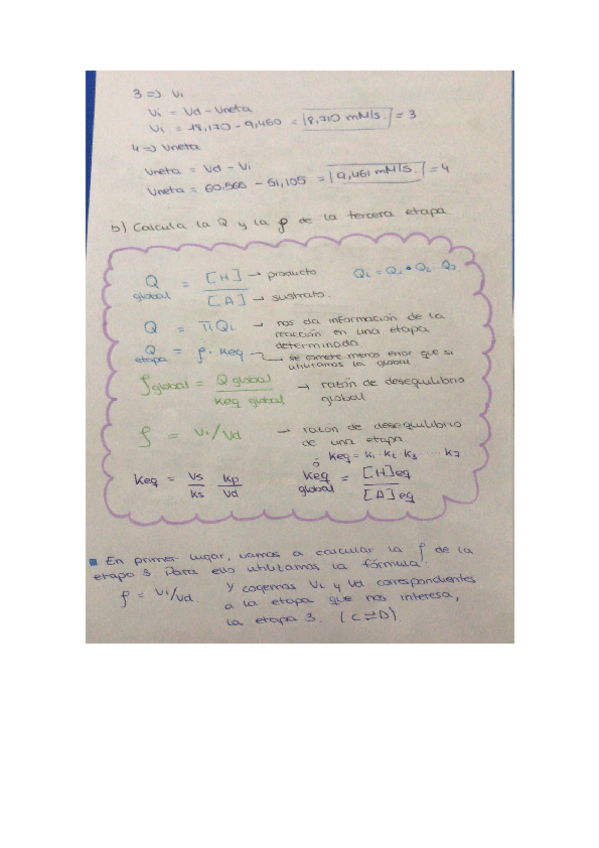 3 => Vi
Vi = Vd - Vneta
Vi = 18,170 - 9,460 = 8,710 mM/s. = 3
4 => Vneta
Vneta = Vd - Vi
Vneta = 60.566 - 51,105 = 9,461 mM/s. = 4
b) Calcula la Q y la ρ de la tercera etapa
Q global = [H] → producto / [A] → sustrato.
QL = Q1 • Q2 · Q7
Q = πQL → nos da información de la reacción en una etapa determinada
Q etapa = ρ · Keq → se comete menos error que si utilizamos la global
ρ global = Q global / Keq global → razón de desequilibrio global
ρ = Vi/Vd → razón de desequilibrio de una etapa
ó Keq = K1 K2 K3 ... K7
Keq = Vs/Ks Kp/Vd
Keq global = [H]eq / [A]eq
En primer lugar, vamos a calcular la ρ de la
etapa 3. Para ello utilizamos la fórmula:
ρ = Vi/Vd. Y cogemos Vi y Vd correspondientes
a la etapa que nos interesa,
la etapa 3. (C⇌D)